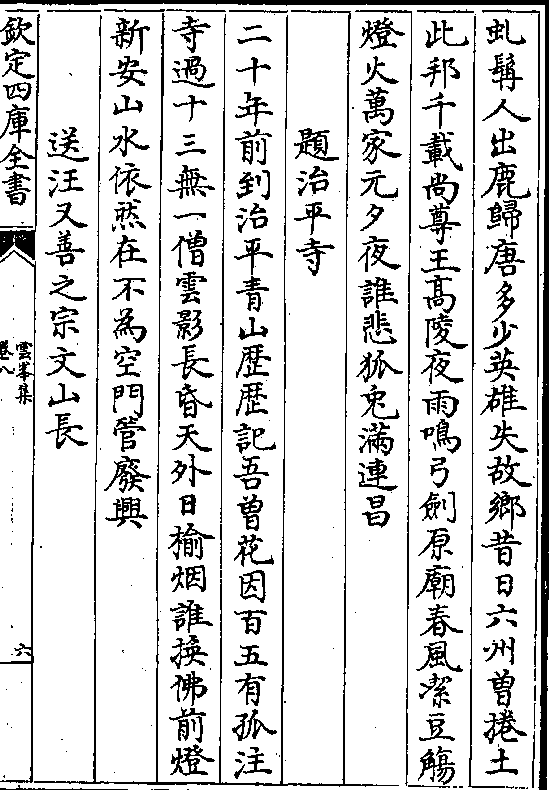 虬髯人出鹿歸唐多少英雄失故鄉昔日六州曽捲土
此邦千載尚尊王髙陵夜雨鳴弓劍原廟春風潔豆觴
燈火萬家元夕夜誰悲狐兎滿連昌
題治平寺
二十年前到治平青山歴歴記吾曽花因百五有孤注
寺過十三無一僧雲影長昏天外日榆烟誰換佛前燈
新安山水依然在不為空門管廢興
送汪又善之宗文山長
欽定四庫全書
雲峯集
卷八
六